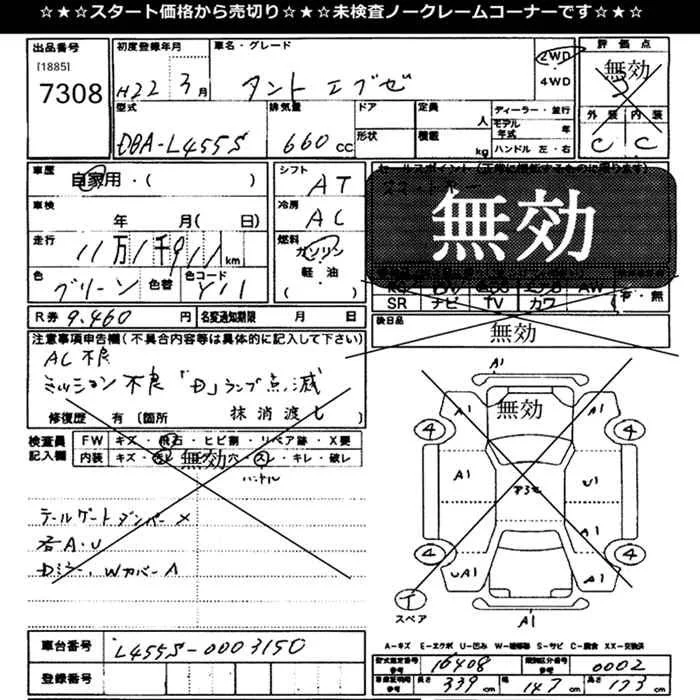 ☆★☆スタート価格から売切り☆★☆未検査ノークレームコーナーです☆★☆
出品番号
[1885]
7308
初度登録年月
H22 3 月
車名・グレード
タント エグゼ
2WD
4WD
評価点
無効
外装 内装
C C
型式
DBA-L455S
排気量
660 cc
ドア
形状
定員
人
積載
kg
ディーラー・並行
モデル年式 年
ハンドル 左・右
車歴
自家用・( )
車検
年 月( 日)
走行
11万1千911 km
色
グリーン
色替
色コード
シフト
AT
冷房
AC
燃料
ガソリン
軽・油
( )
無効
SR ナビ TV カワ
無
後日品
無効
R券 9.460 円 名変通知期限 月 日
注意事項申告欄(不具合内容等は具体的に記入して下さい)
AC 不良
ミッション 不良 「D」ランプ点滅
修復歴 有 〔箇所 抹消渡し 〕
検査員記入欄
FW キズ・飛石・ヒビ割・リペア跡・X要
内装 キズ・汚レ・穴・スレ・キレ・破レ
無効
ハンドル
テールゲートダンパー ×
右A・U
Dミラー、WカバーA
車台番号 L455S-0003150
登録番号
無効
A1
A1 A1
4 4
A1 U1
A1
4 4
UA1 A1
A1
イ
スペア
A-キズ E-エクボ U-凹み W-補修跡 S-サビ C-腐食 XX-交換済
型式指定番号 16408 類別区分番号 0002
長さ 339 cm 幅 147 cm 高さ 173 cm